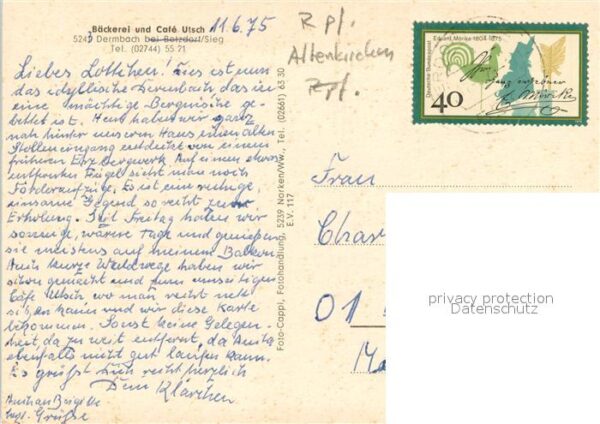 Bäckerei und Café Utsch 11.6.75
5241 Dermbach bei Betzdorf/Sieg
Tel. (02744) 55 21
Liebes Lottchen! Dies ist nun
das idyllische Dermbach das in
eine mächtige Bergwiese ge-
bettet ist. Heut haben wir ganz
nah hinter unserm Haus einen alten
Stolleneingang entdeckt von einem
früheren Erzbergwerk. Auf einem etwas
entfernten Hügel sieht man noch
Förderaufzüge. Es ist eine ruhige,
einsame Gegend so recht zur
Erholung. Seit Freitag haben wir
sonnige, wärmere Tage und genießen
sie meistens auf meinem Balkon
Auch kurze Waldwege haben wir
schon gemacht und zum
Café Utsch, wo man recht nett
sitzen kann und wir diese Karte
bekommen. Sonst keine Gelegen-
heit, da zu weit entfernt, da Anita
ebenfalls nicht gut laufen kann.
Es grüßt Dich recht herzlich
Dein Klärchen
Grüße
Foto-Cappi, Fotohandlung, 5239 Norken/Ww., Tel. (02661) 63 30
E.V. 117
R pf.
Altenkirchen
Rpf.
Eduard Mörike 1804-1875
Deutsche Bundespost
40
E. Mörike
Frau
Char
01
Ma
privacy protection
Datenschutz